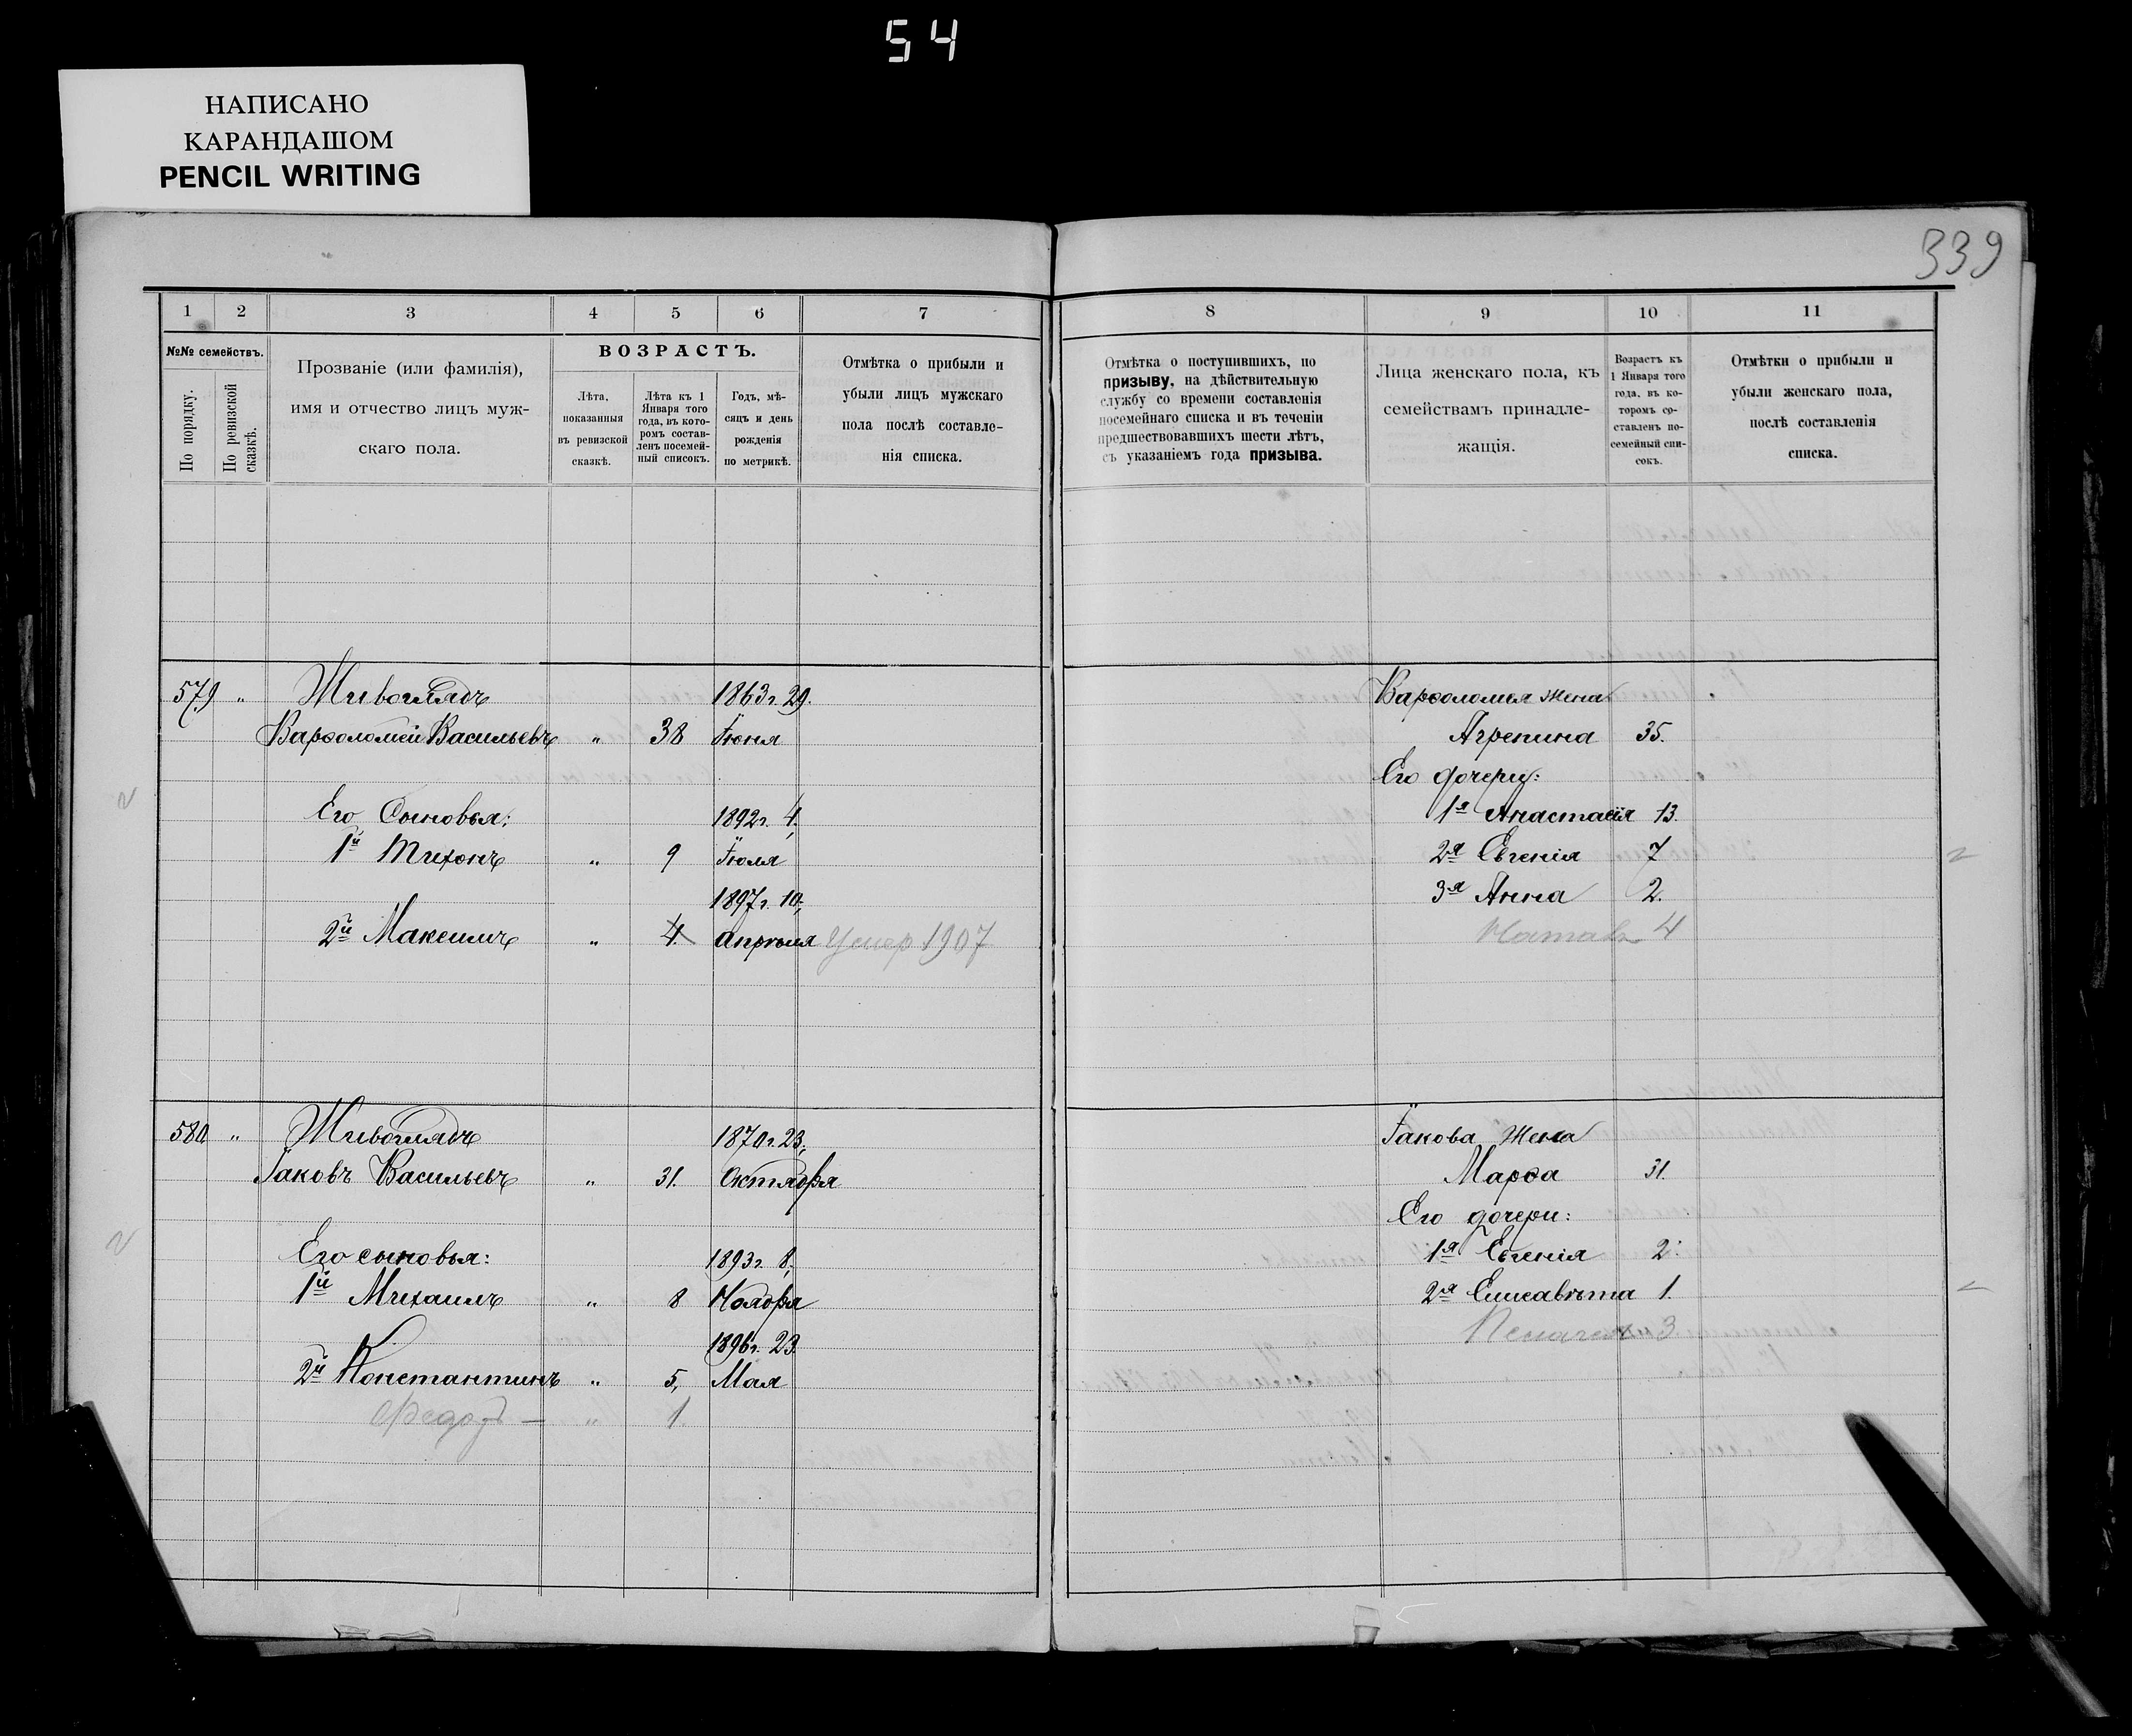 54
НАПИСАНО
КАРАНДАШОМ
PENCIL WRITING
339
1 2 3 4 5 6 7 8 9 10 11
№№ семействъ.
По порядку.
По ревизской сказкѣ.
Прозваніе (или фамилія),
имя и отчество лицъ муж-
скаго пола.
ВОЗРАСТЪ.
Лѣта,
показанныя
въ ревизской
сказкѣ.
Лѣта къ 1
Января того
года, въ кото-
ромъ состав-
ленъ посемей-
ный списокъ.
Годъ, мѣ-
сяцъ и день
рожденія
по метрикѣ.
Отмѣтка о прибыли и
убыли лицъ мужскаго
пола послѣ составле-
нія списка.
Отмѣтка о поступившихъ, по
призыву, на дѣйствительную
службу со времени составленія
посемейнаго списка и въ теченіи
предшествовавшихъ шести лѣтъ,
съ указаніемъ года призыва.
Лица женскаго пола, къ
семействамъ принадле-
жащія.
Возрастъ къ
1 Января того
года, въ ко-
торомъ со-
ставленъ по-
семейный спи-
сокъ.
Отмѣтки о прибыли и
убыли женскаго пола,
послѣ составленія
списка.
579 " Живоглядъ 1863 г. 29. Варѳоломея жена
Варѳоломей Васильевъ " 38 Іюня Агрепина 35.
Его дочери:
Его Сыновья: 1892 г. 4. 1я Анастасія 13.
1й Тихонъ " 9 Іюля 2я Евгенія 7
1897 г. 10. 3я Анна 2.
2й Максимъ " 4. Апрѣля Умер 1907 Натал 4
580 " Живоглядъ 1870 г. 23. Іакова жена
Іаковъ Васильевъ " 31. Октября Марѳа 31.
Его дочери:
Его сыновья: 1893 г. 8. 1я Евгенія 2.
1й Михаилъ " 8 Ноября 2я Елисавѣта 1.
1896 г. 23. 3
2й Константинъ " 5, Мая
Федор — " 1